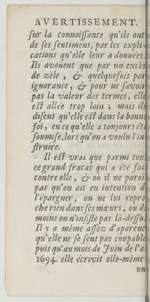 AVERTISSEMENT.
sur la connoissance qu'ils ont
de ses sentimens, par les expli-
cations qu'elle leur a données.
Ils avoüent que par un excés
de zéle, & quelquefois par
ignorance, & pour ne savoir
pas la valeur des termes, elle
est allée trop loin; mais ils
disent qu'elle est dans la bonne
foi, en ce qu'elle a toujours été
soumise, lors qu'on a voulu l'in-
struire.
Il est vrai que parmi tout
ce grand fracas qui a été fait
contre elle, & où il ne paroit
pas qu'on ait eu intention de
l'épargner, on ne lui repro-
che rien dans ses mœurs, ou du
moins on n'insiste pas là-dessus.
Il y a même assez d'aparence
qu'elle ne se sent pas coupable
puis qu'au mois de Juin de l'an
1694. elle écrivit elle-même